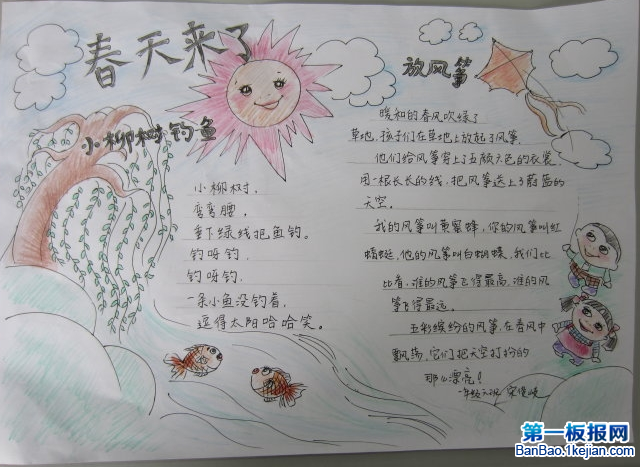 春天来了
小柳树钓鱼
小柳树，
弯弯腰，
垂下绿线把鱼钓。
钓呀钓，
钓呀钓，
一条小鱼没钓着，
逗得太阳哈哈笑。
放风筝
暖和的春风吹绿了
草地，孩子们在草地上放起了风筝。
他们给风筝穿上了五颜六色的衣裳
用一根长长的线，把风筝送上了蔚蓝的
天空。
我的风筝叫黄蜜蜂，你的风筝叫红
蜻蜓，他的风筝叫白蝴蝶，我们比
比看，谁的风筝飞得最高，谁的风
筝飞得最远。
五彩缤纷的风筝，在春风中
飘荡，它们把天空打扮的
那么漂亮！
一年级六班
第一板报网
BanBao.1kejian.com